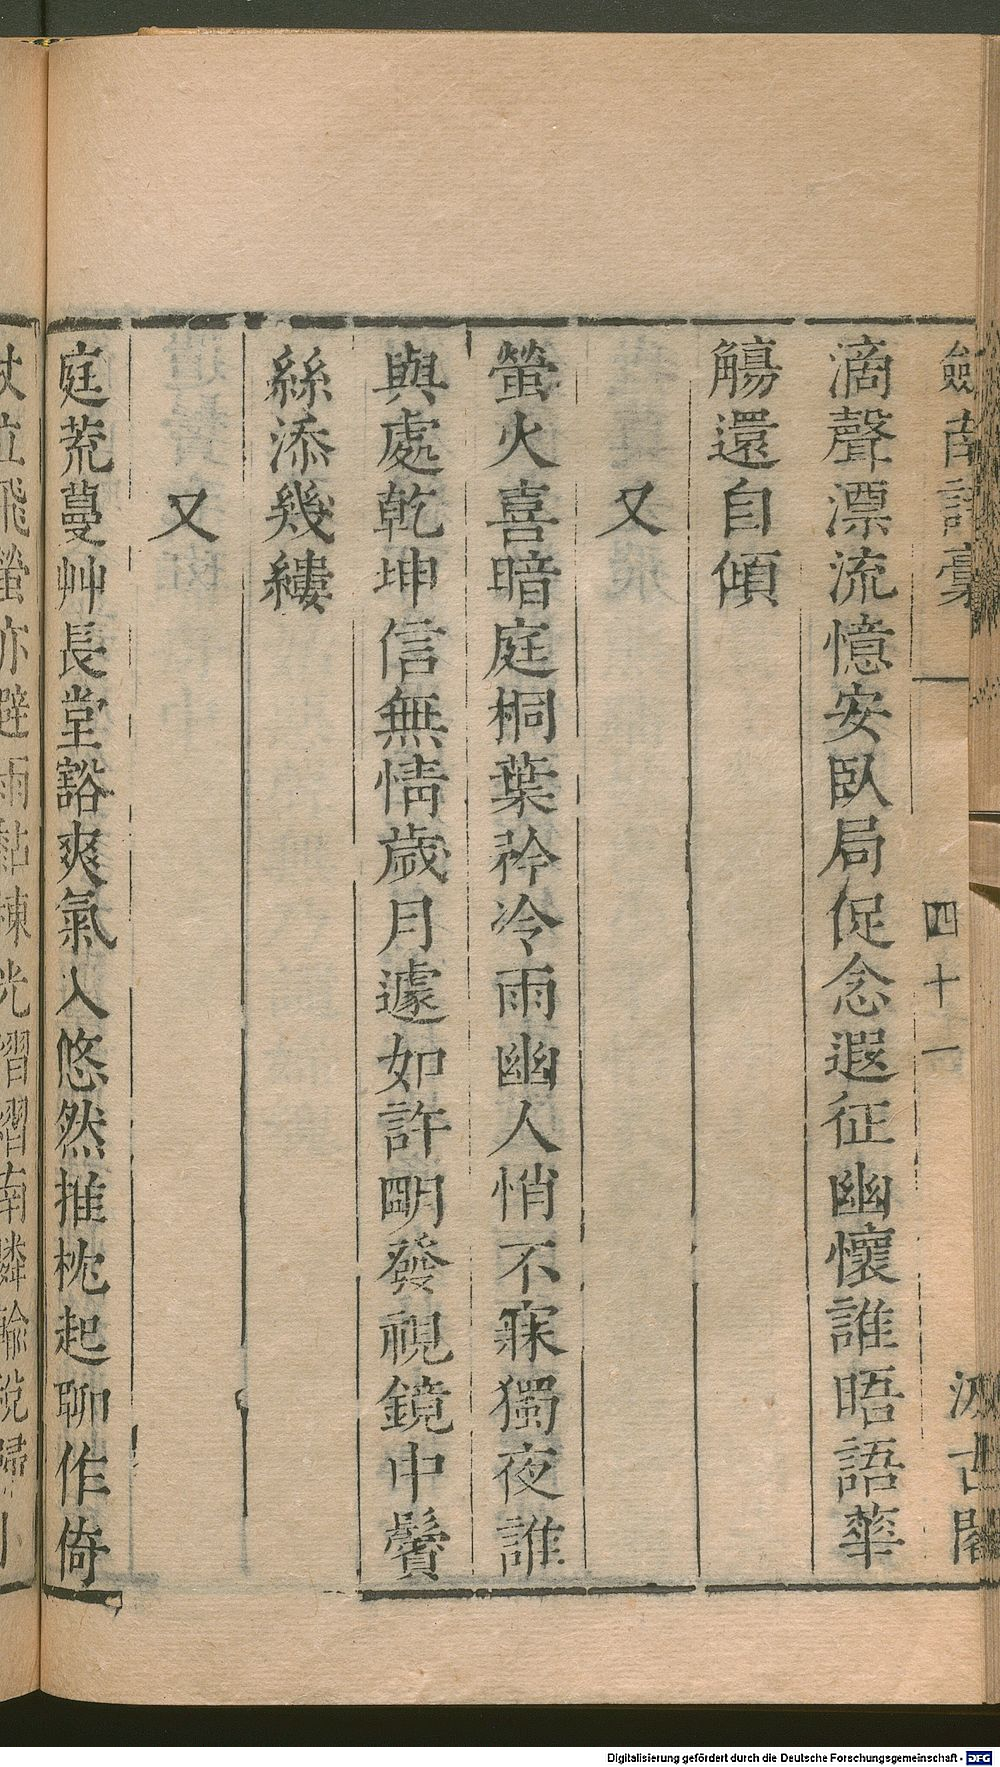 劍南詩稾
四十一
汲古閣
滴聲漂流憶安臥局促念遐征幽懷誰晤語華
觴還自傾
又
螢火喜暗庭桐葉矜冷雨幽人悄不寐獨夜誰
與處乾坤信無情歲月遽如許明發視鏡中鬢
絲添幾縷
又
庭荒蔓艸長堂豁爽氣入悠然推枕起聊作倚
杖立飛螢亦避雨黏棟光熠熠南鄰輸稅歸
Digitalisierung gefördert durch die Deutsche Forschungsgemeinschaft - DFG